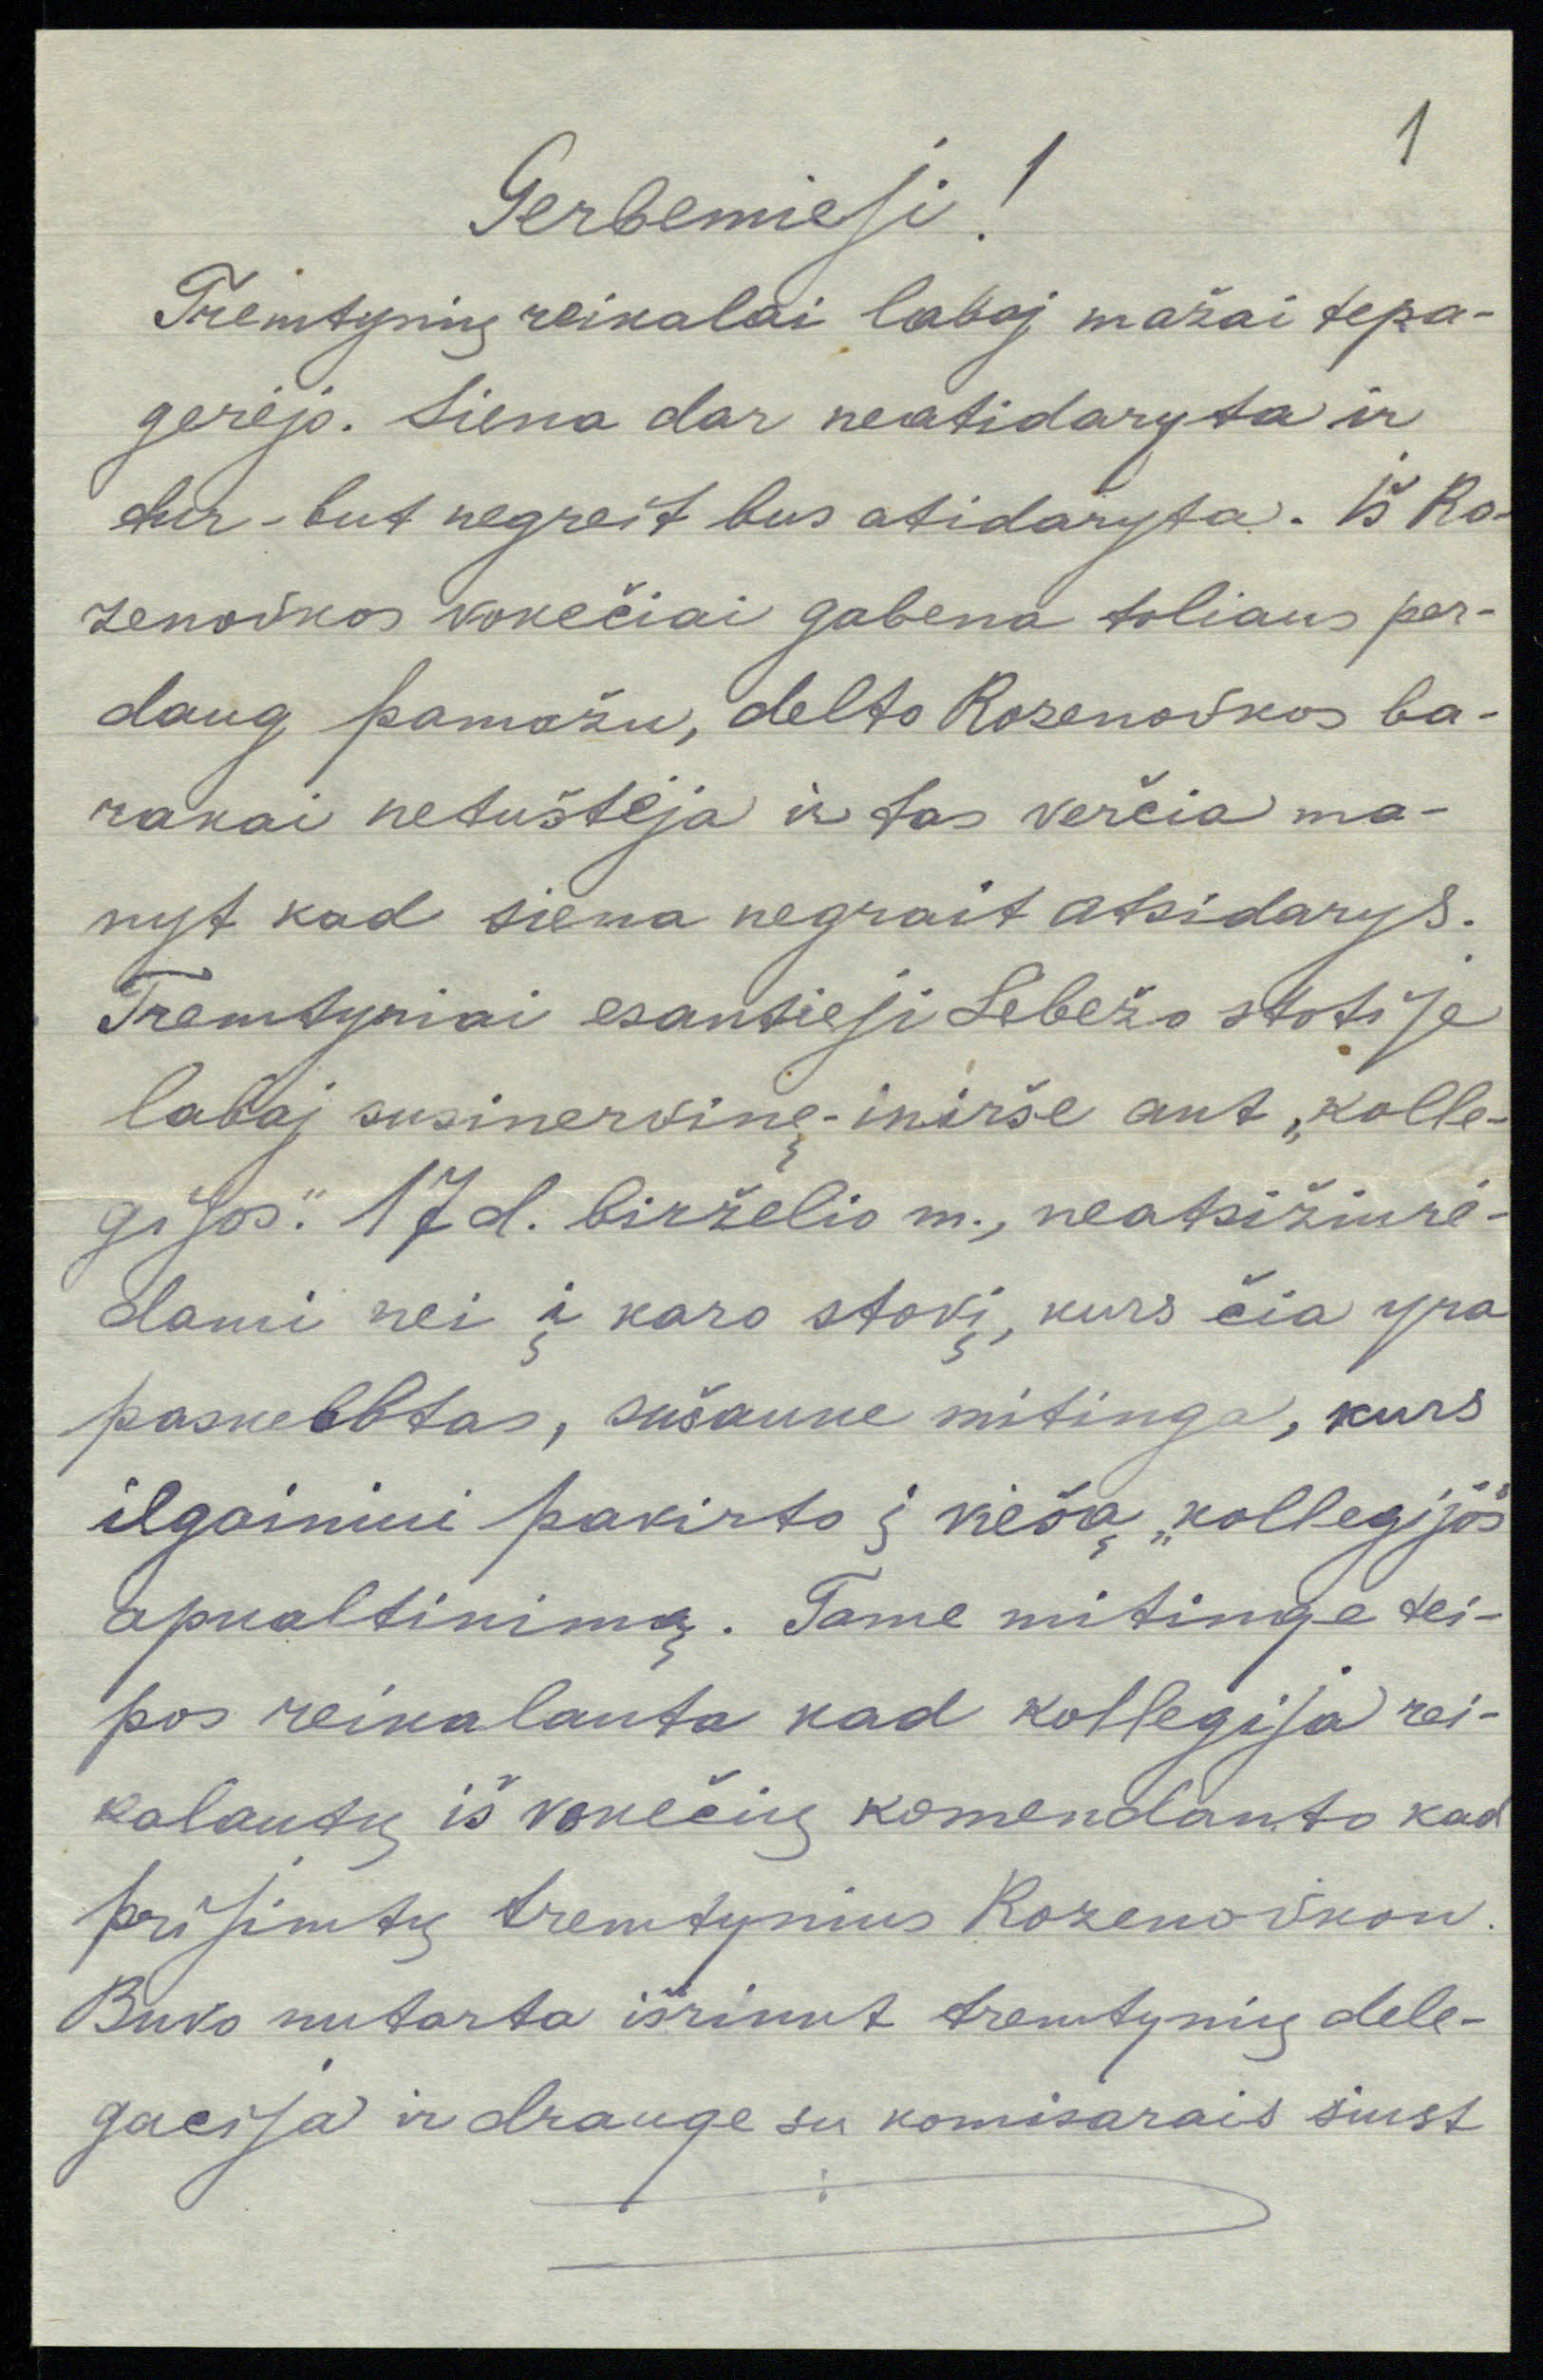 1
Gerbemieji!
Tremtynių reikalai labaj mažai tepa-
gerėjo. Siena dar neatidaryta ir
tur-but negreit bus atidaryta. Iš Ro-
zenovkos vokečiai gabena toliaus per-
daug pamažu, delto Rozenovkos ba-
rakai netuštėja ir tas verčia ma-
nyt kad siena negrait atsidarys.
Tremtyniai esantieji Sebežo stotije
labaj susinervinę-inirše ant „kolle-
gijos". 17 d. birželio m., neatsižiurė-
dami nei į karo stovį, kurs čia yra
paskelbtas, sušauke mitinga, kurs
ilgainiui pavirto į viešą „kollegijos
apkaltinimą. Tame mitinge tei-
pos reikalauta kad kollegija rei-
kalautų iš vokečių komendanto kad
prijimtų tremtynius Rozenovkon.
Buvo nutarta išrinkt tremtynių dele-
gacija ir drauge su komisarais siust